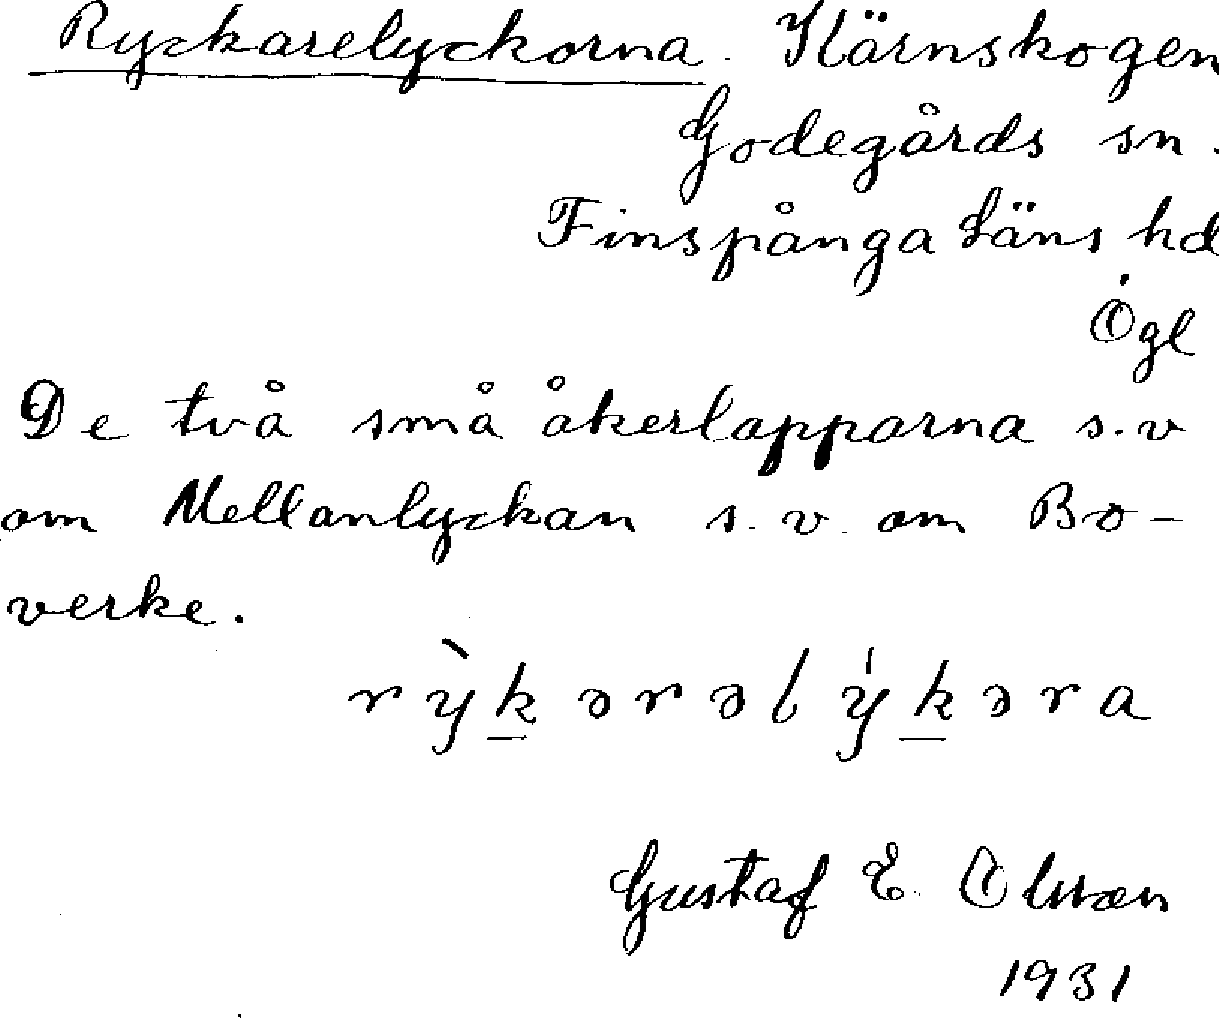 Ryckarelyckorna. Kärnskogen
Godegårds sn.
Finspånga läns hd
Ögl
De två små åkerlapparna s.v
om Mellanlyckan s.v. om Bo-
verke.
rỳk̲ərəlýk̲əra
Gustaf E. Olsson
1931